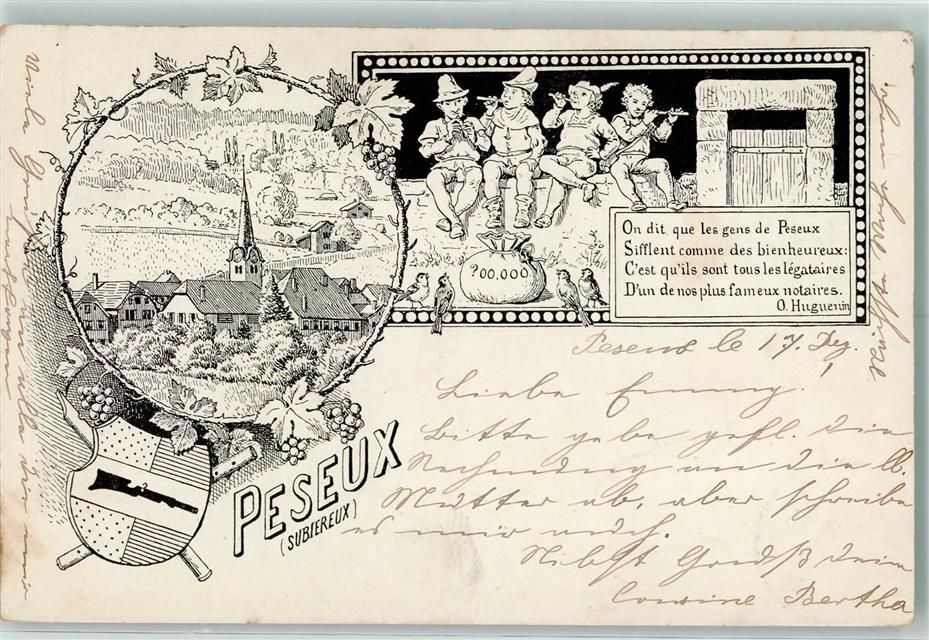 On dit que les gens de Peseux
Sifflent comme des bienheureux:
C'est qu'ils sont tous les légataires
D'un de nos plus fameux notaires.
O. Huguenin
?00,000
PESEUX
(SUBIEREUX)
Peseux le 17. Dez.
Liebe Emmy!
Bitte gebe gefl. die
Rechnung an die lb.
Mutter ab, aber schreibe
es mir auch.
Nebst Gruß Deine
Cousine Bertha